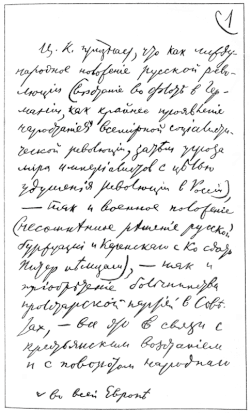 (1
Ц. К. признает, что как между-
народное положение русской рево-
люции (восстание во флоте в Гер-
мании, как крайнее проявление
нарастания всемирной социалисти-
ческой революции, затем угроза
мира империалистов с целью
удушения революции в России),
— так и военное положение
(несомненное решение русской
буржуазии и Керенского с Ко сдать
Питер немцам), — так и
приобретение большинства
пролетарской партией в Сове-
тах, — все это в связи с
крестьянским восстанием
и с поворотом народного
во всей Европе